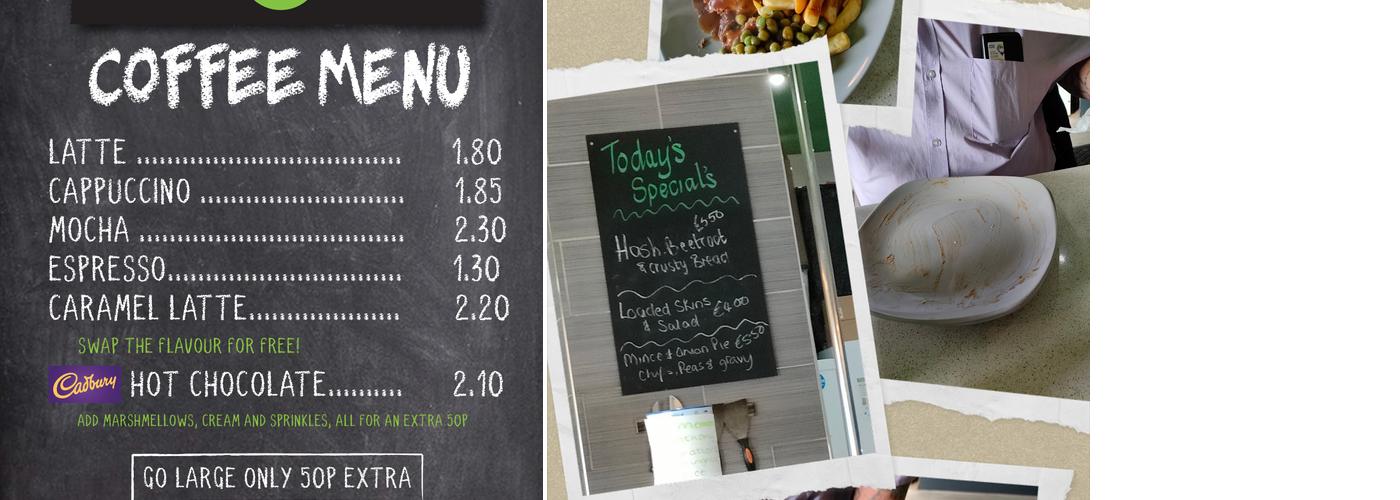 COFFEE MENU
LATTE ................................... 1.80
CAPPUCCINO ........................... 1.85
MOCHA ................................... 2.30
ESPRESSO............................... 1.30
CARAMEL LATTE.................... 2.20
SWAP THE FLAVOUR FOR FREE!
Cadbury HOT CHOCOLATE.......... 2.10
ADD MARSHMELLOWS, CREAM AND SPRINKLES, ALL FOR AN EXTRA 50P
GO LARGE ONLY 50P EXTRA
Today's
Special's
£5.50
Hash. Beetroot
& Crusty Bread
Loaded Skins £4.00
& Salad
Mince & Onion Pie £5.50
Chips, Peas & gravy